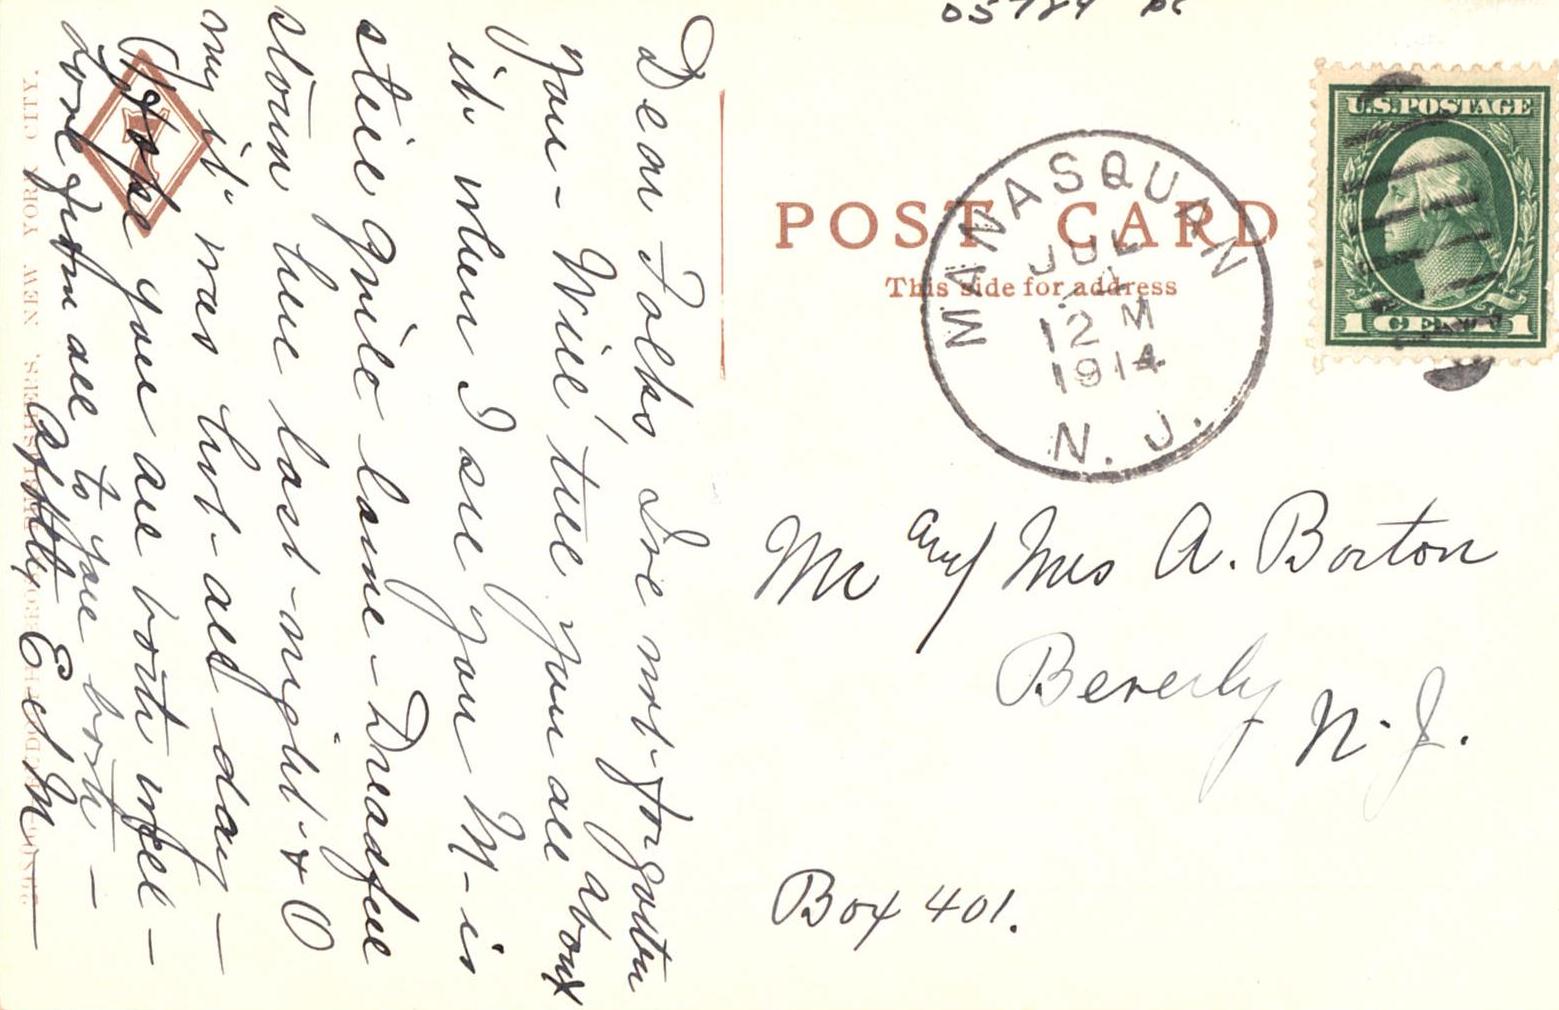 Dear Folks, I've not forgotten
you - Will tell you all about
it when I see you M - is
still quite lame - Dreadful
storm here last night & O
my it was hot - all day -
Hope you are both well -
Love from all to you both -
Afftly E M
NEW YORK CITY.
POST CARD
This side for address
MANASQUAN
JUL
12 M
1914
N. J.
U.S. POSTAGE
1 CENT 1
Mr and Mrs A. Borton
Beverly
N. J.
Box 401.